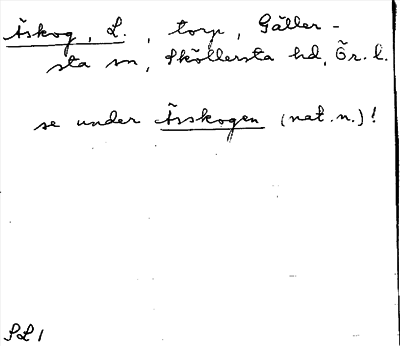 Åskog, L., torp, Gäller-
sta sn, Sköllersta hd, Ör. l.
se under Åsskogen (nat. n.)!
SL 1